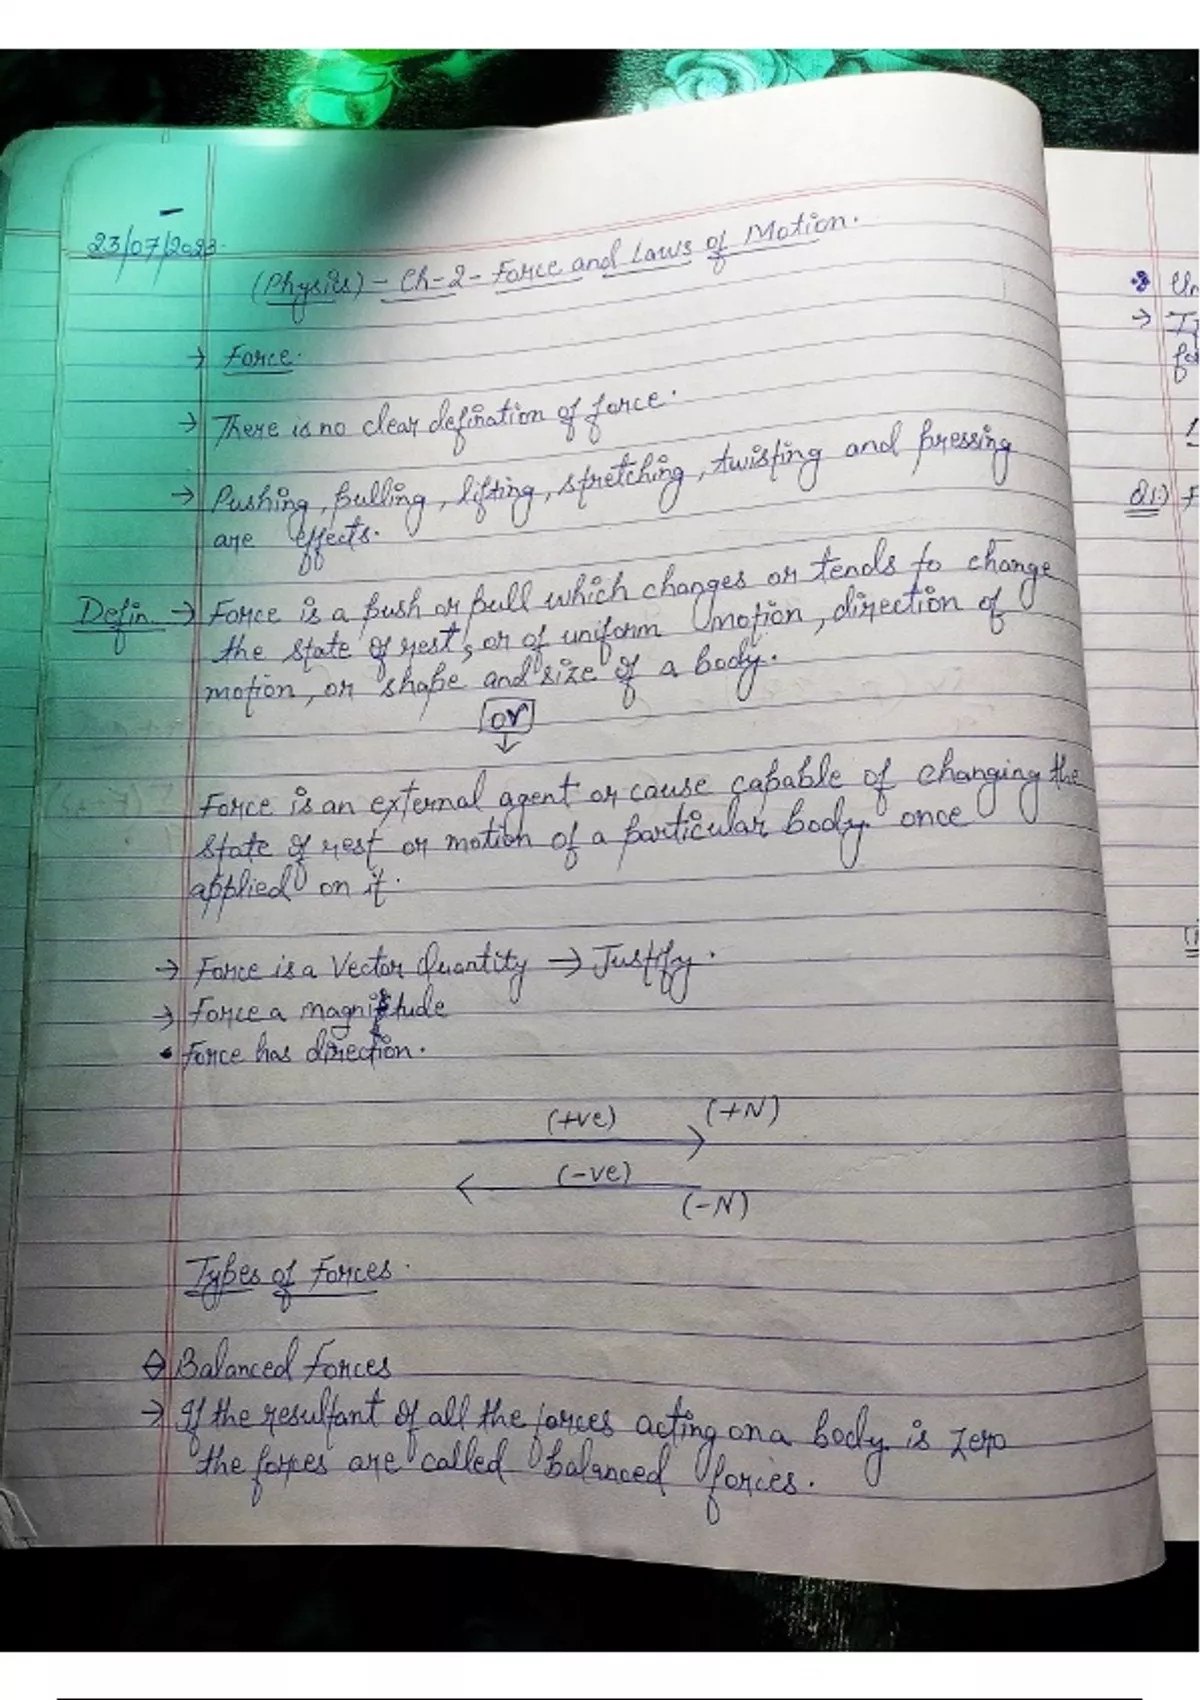 23/07/2023.
(Physics) - Ch-2- Force and Laws of Motion.
→ Force.
→ There is no clear defination of force.
→ Pushing, pulling, lifting, stretching, twisting and pressing
are effects.
Defin. → Force is a push or pull which changes or tends to change
the state of rest, or of uniform motion, direction of
motion, or shape and size of a body.
or
↓
Force is an external agent or cause capable of changing the
state of rest or motion of a particular body once
applied on it.
→ Force is a Vector Quantity → Justify.
→ Force a magnitude
• Force has direction.
(+ve) (+N)
(-ve)
(-N)
Types of Forces.
→ Balanced Forces
→ If the resultant of all the forces acting on a body is zero
the forces are called balanced forces.
→
Q1.)